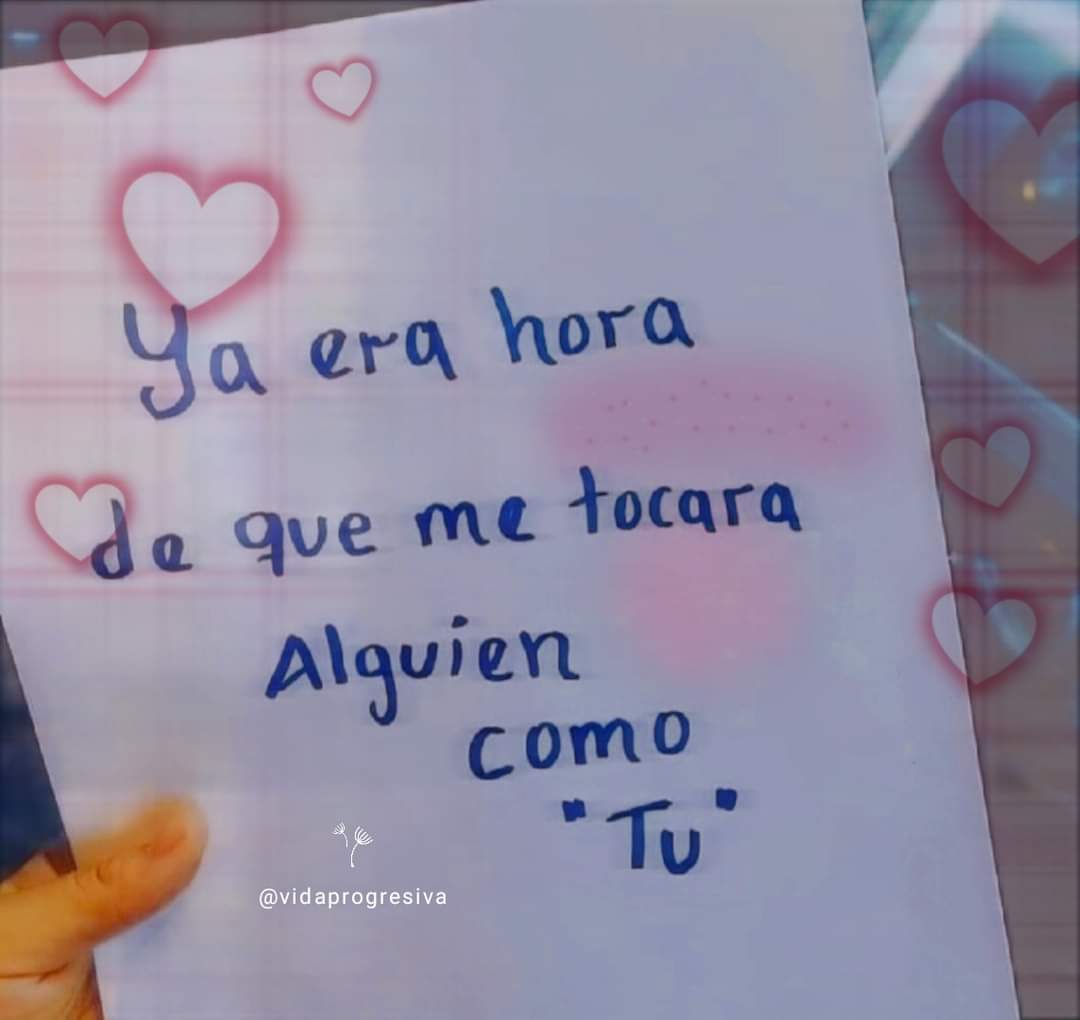 Ya era hora
de que me tocara
Alguien
como
"Tu"
@vidaprogresiva